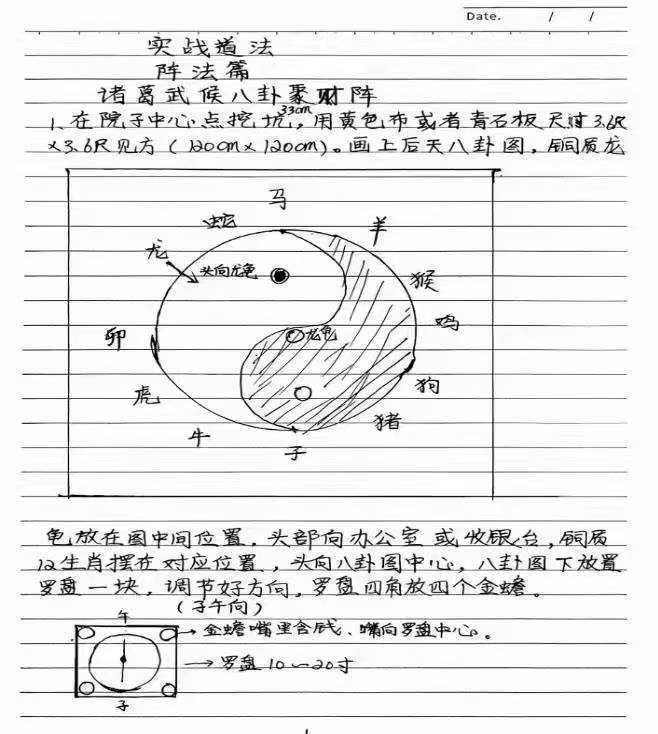 Date. / /
实战道法
阵法篇
诸葛武候八卦聚财阵
33cm
1、在院子中心点挖坑，用黄色布或者青石板尺寸3.6尺
×3.6尺见方（120cm×120cm）。画上后天八卦图，铜质龙
马
蛇
羊
龙
头向龙龟
猴
鸡
卯
龙龟
虎
狗
猪
牛
子
龟放在图中间位置，头部向办公室或收银台，铜质
12生肖摆在对应位置，头向八卦图中心，八卦图下放置
罗盘一块，调节好方向，罗盘四角放四个金蟾。
（子午向）
午
金蟾嘴里含钱、嘴向罗盘中心。
罗盘10~20寸
子